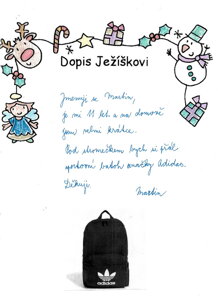 Dopis Ježíškovi
Jmenuji se Martin,
je mi 11 let a na domově
jsem velmi krátce.
Pod stromečkem bych si přál
sportovní batoh značky Adidas.
Děkuji.
Martin
adidas